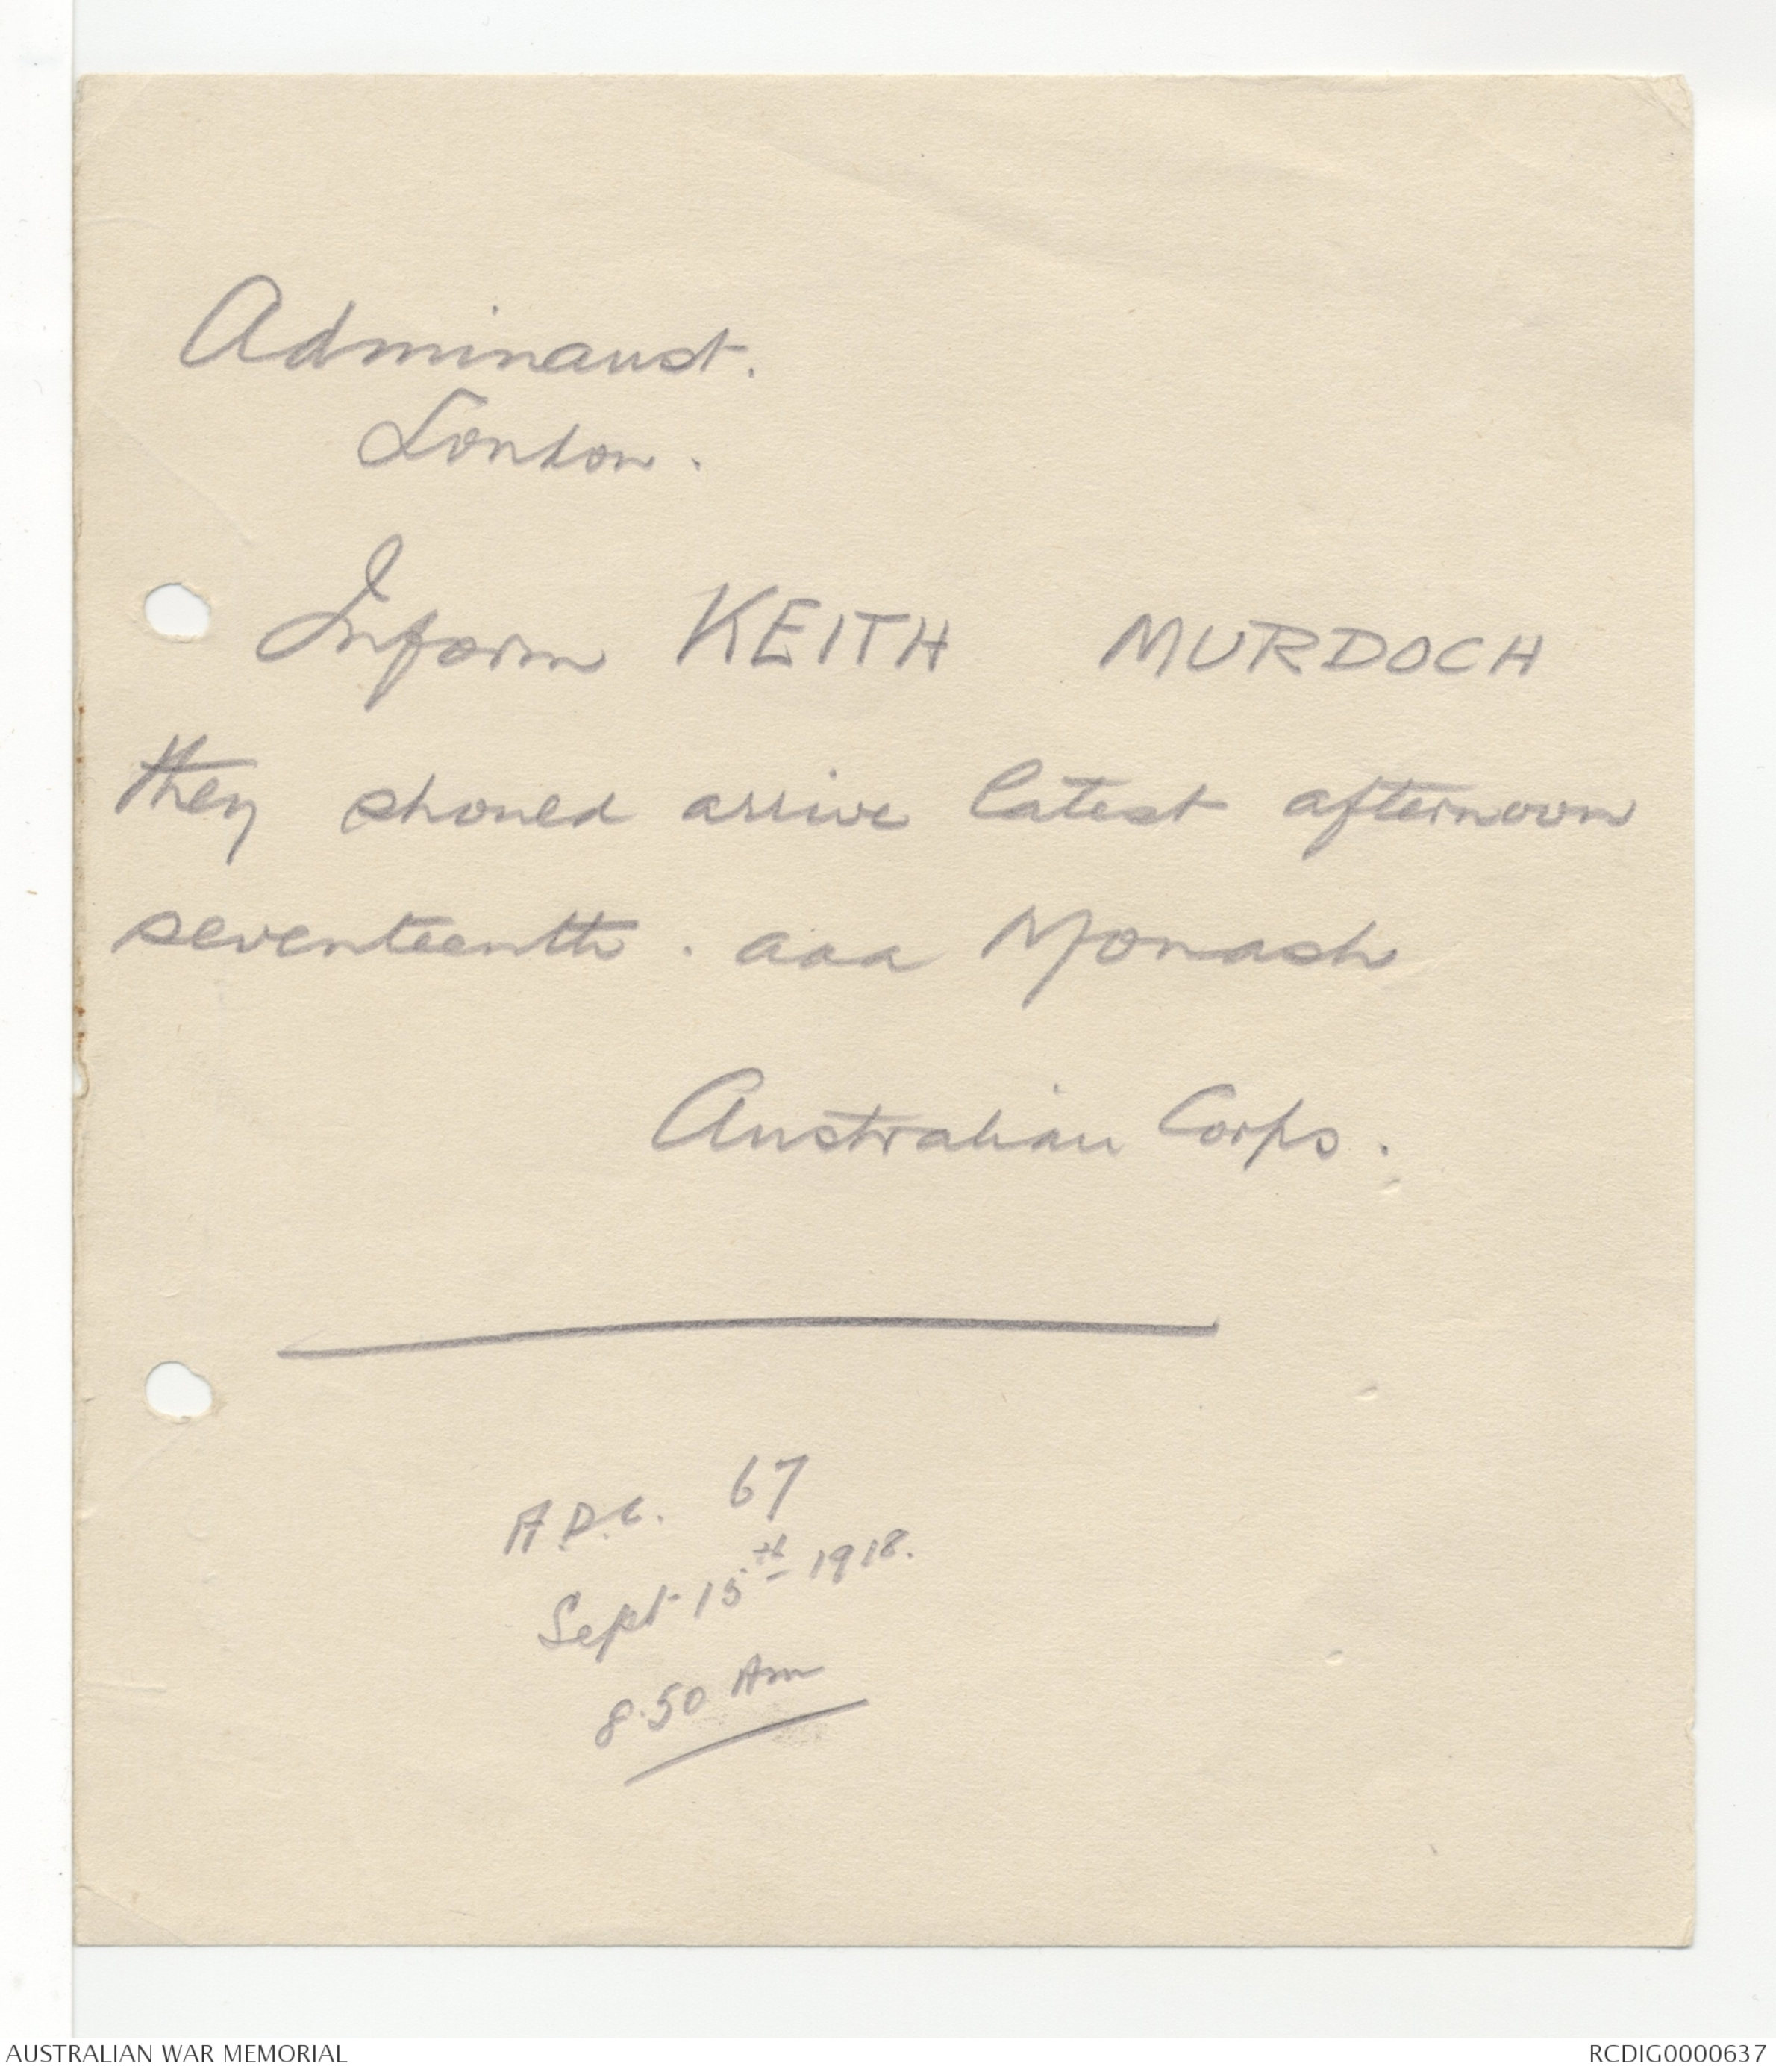 Adminaust.
London.
Inform KEITH MURDOCH
they should arrive latest afternoon
seventeenth. aaa Monash
Australian Corps.
A.D.C. 67
Sept 15th 1918.
8.50 Am
AUSTRALIAN WAR MEMORIAL
RCDIG0000637